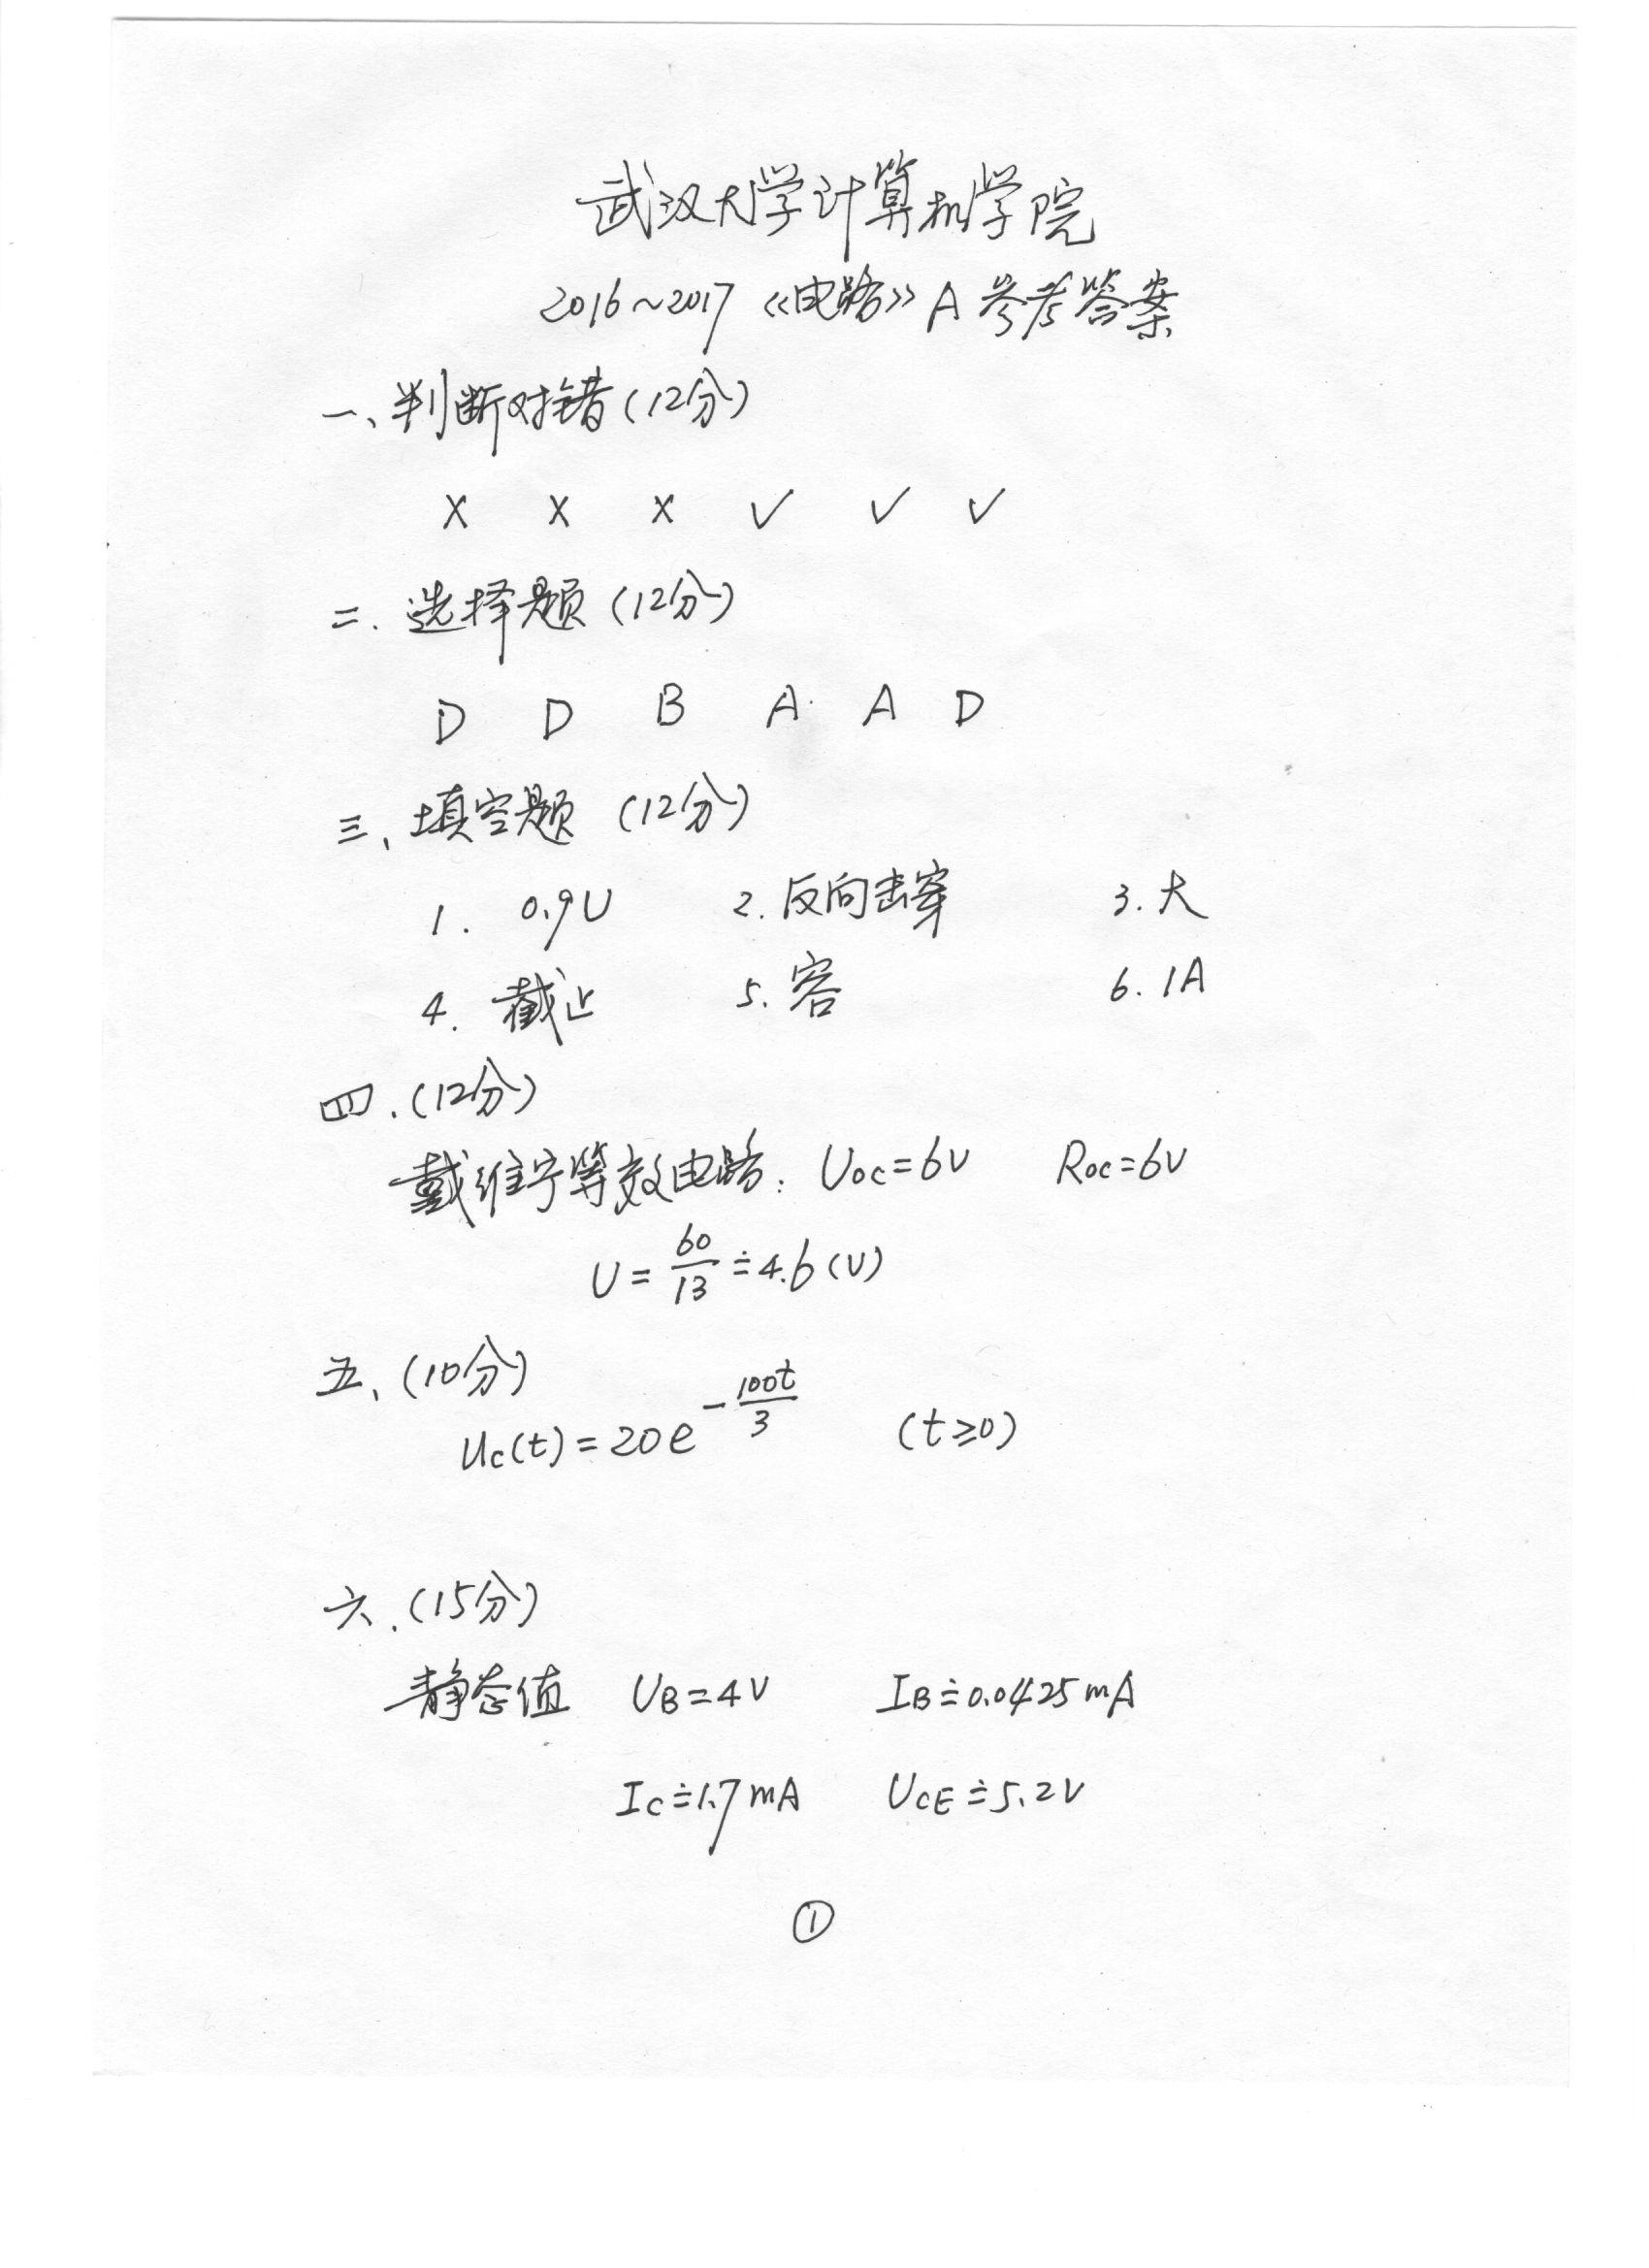 武汉大学计算机学院
2016~2017《电路》A 参考答案
一、判断对错(12分)
× × × ✓ ✓ ✓
二. 选择题(12分)
D D B A A D
三、填空题 (12分)
1. 0.9U 2. 反向击穿 3. 大
4. 截止 5. 容 6. 1A
四.(12分)
戴维宁等效电路: Uoc=6V Roc=6V
U = 60/13 ≐ 4.6 (V)
五、(10分)
Uc(t) = 20e^(-100t/3) (t≥0)
六.(15分)
静态值 UB=4V IB≐0.0425mA
Ic≐1.7mA UCE≐5.2V
①